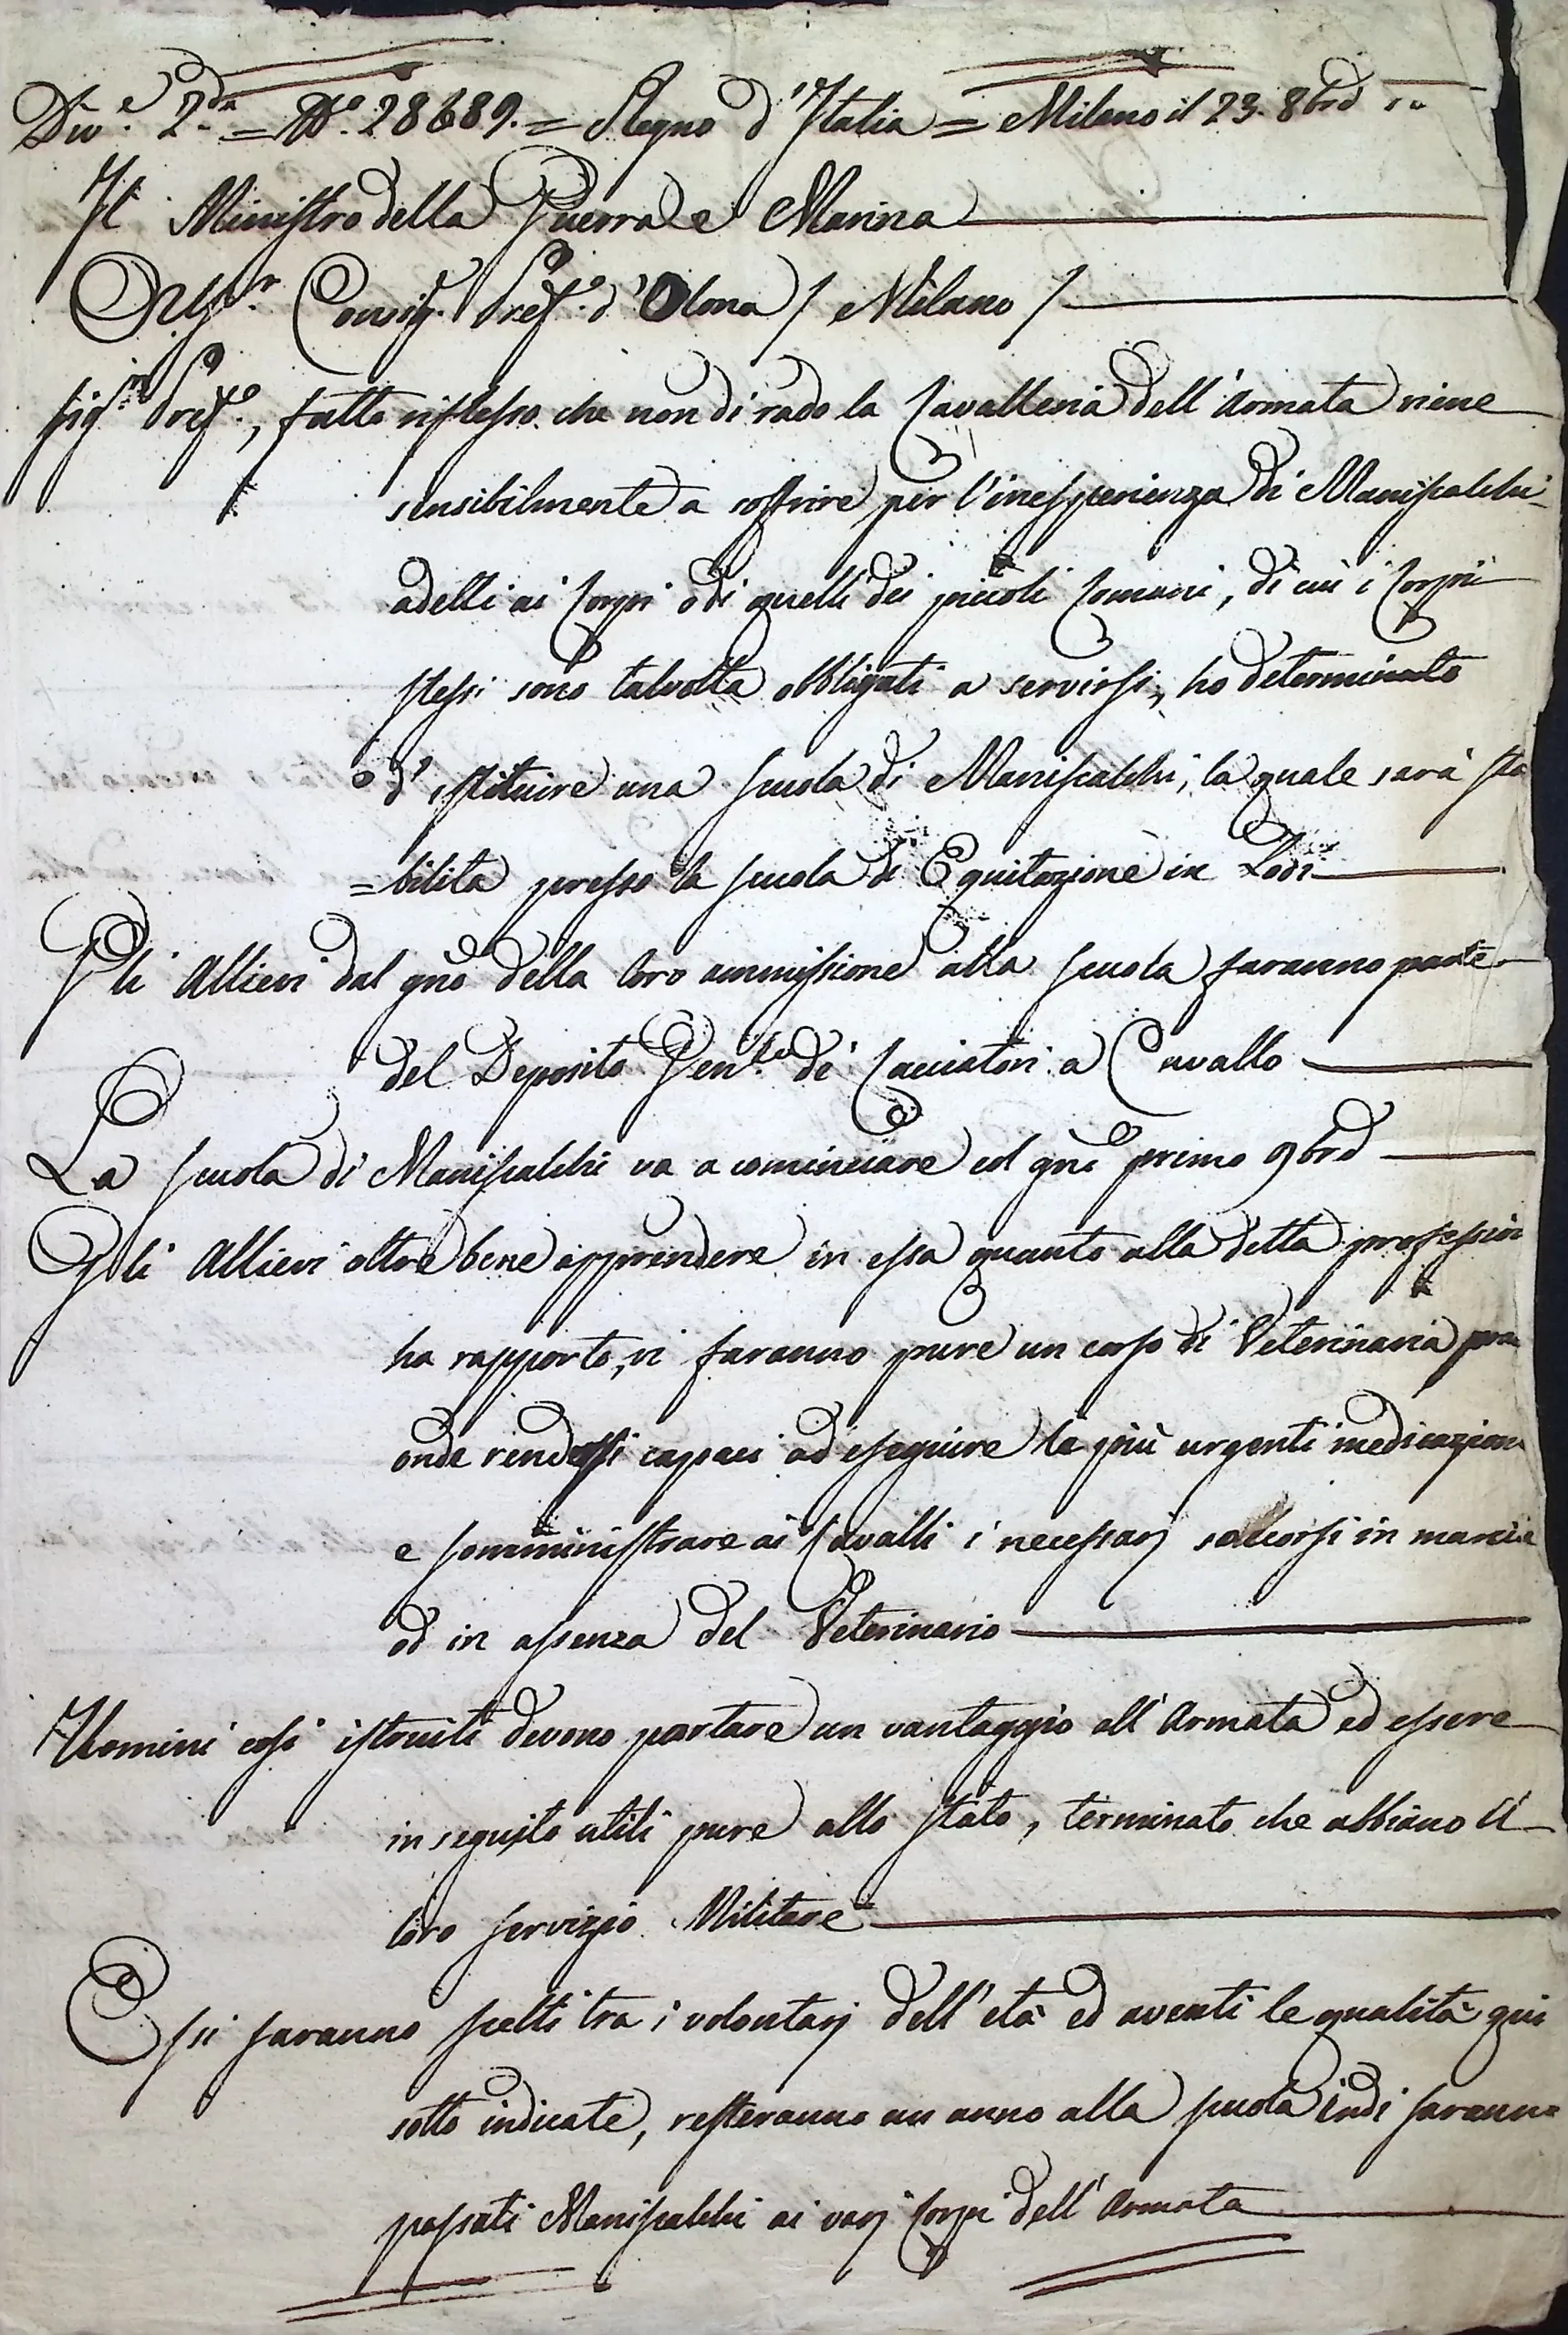 Div.e 2.da = N.o 28689. = Regno d'Italia = Milano il 23. 8bre
Il Ministro della Guerra e Marina
Al Sig.r Consig.r Pref.o d'Olona / Milano /
Sig.r Pref.o, fatto riflesso che non di rado la Cavalleria dell'Armata viene
sensibilmente a soffrire per l'inesperienza di Maniscalchi
adetti ai Corpi o di quelli dei piccoli Comuni, di cui i Corpi
stessi sono talvolta obbligati a servirsi, ho determinato
d'istituire una scuola di Maniscalchi, la quale sarà sta
=bilita presso la scuola di Equitazione in Lodi
Gli Allievi dal gno della loro ammissione alla scuola faranno parte
del Deposito Gen.le di Cacciatori a Cavallo
La scuola di Maniscalchi va a cominciare col gno primo 9bre
Gli Allievi oltre bene apprendere in essa quanto alla detta profession
ha rapporto, vi faranno pure un corso di Veterinaria pra
onde rendersi capaci ad eseguire le più urgenti medicazion
e somministrare ai Cavalli i necessarj soccorsi in marcia
od in assenza del Veterinario
Uomini così istruiti devono portare un vantaggio all'Armata ed essere
in seguito utili pure allo stato, terminato che abbiano il
loro servizio Militare
Essi saranno scelti tra i volontarj dell'età ed aventi le qualità qui
sotto indicate, resteranno un anno alla scuola indi sarann
passati Maniscalchi ai varj Corpi dell'Armata